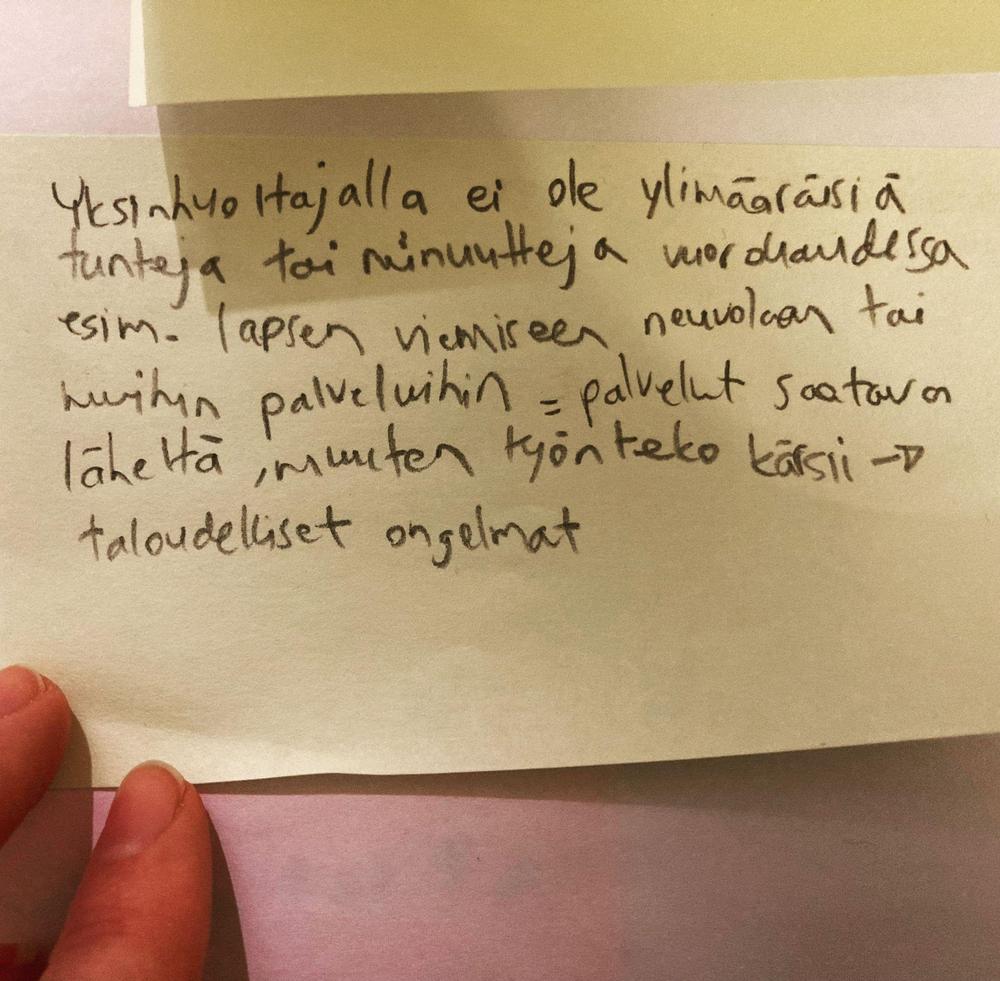 Yksinhuoltajalla ei ole ylimääräisiä
tunteja tai minuutteja vuorokaudessa
esim. lapsen viemiseen neuvolaan tai
muihin palveluihin = palvelut saatava
läheltä, muuten työnteko kärsii →
taloudelliset ongelmat